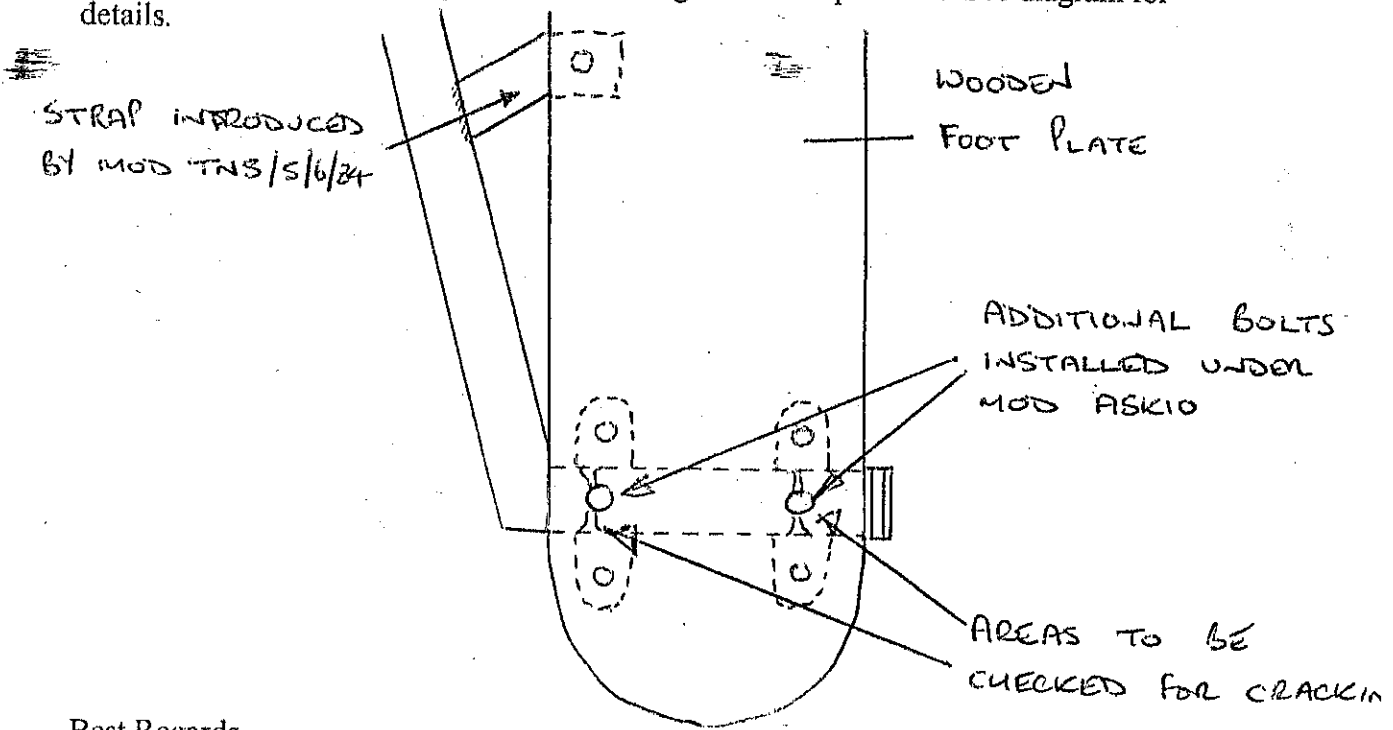 details.
diagram for
STRAP INTRODUCED
BY MOD TNS/5/6/24
WOODEN
FOOT PLATE
ADDITIONAL BOLTS
INSTALLED UNDER
MOD ASK10
AREAS TO BE
CHECKED FOR CRACKIN
Best Regards